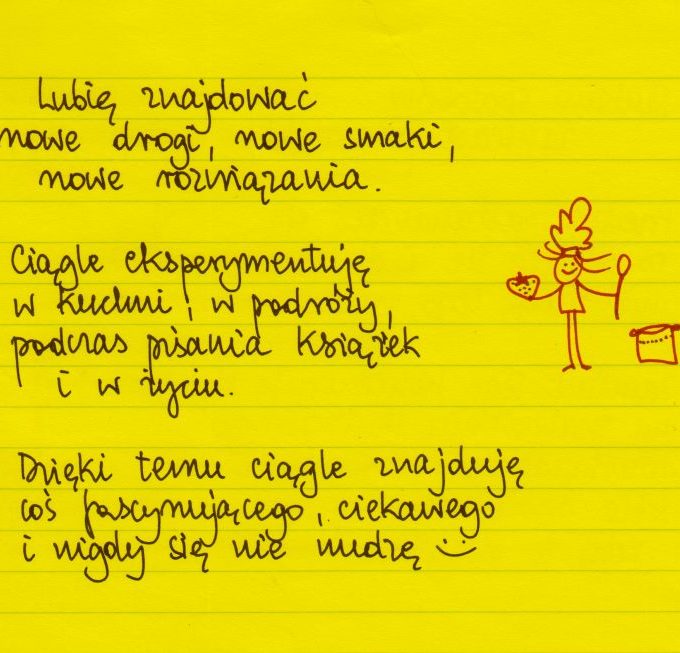 Lubię znajdować
nowe drogi, nowe smaki,
nowe rozwiązania.
Ciągle eksperymentuję
w kuchni, w podróży,
podczas pisania książek
i w życiu.
Dzięki temu ciągle znajduję
coś fascynującego, ciekawego
i nigdy się nie nudzę :)